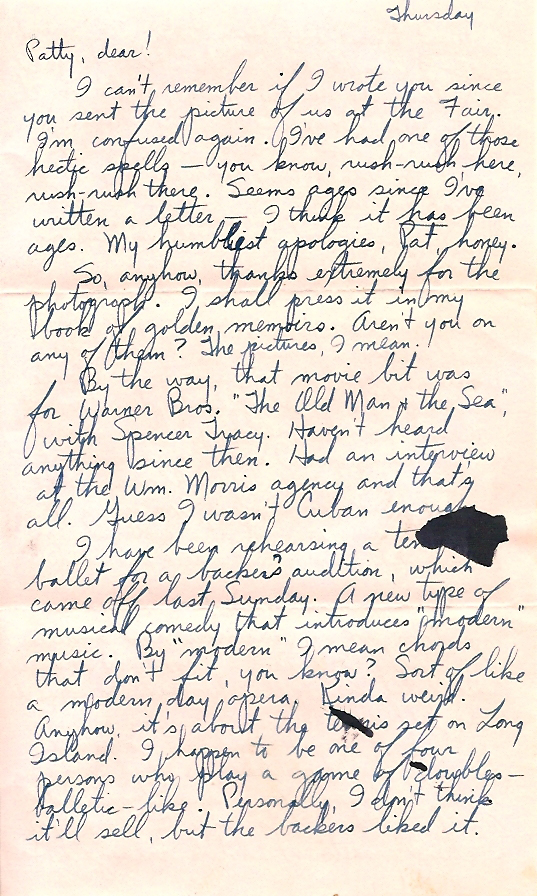 Thursday
Patty, dear!
I can't remember if I wrote you since
you sent the picture of us at the Fair.
I'm confused again. I've had one of those
hectic spells — you know, rush-rush here,
rush-rush there. Seems ages since I've
written a letter — I think it has been
ages. My humblest apologies, Pat, honey.
So, anyhow, thanks extremely for the
photograph. I shall press it in my
book of golden memoirs. Aren't you on
any of them? The pictures, I mean!
By the way, that movie bit was
for Warner Bros. "The Old Man & the Sea",
with Spencer Tracy. Haven't heard
anything since then. Had an interview
at the Wm. Morris agency and that's
all. Guess I wasn't Cuban enough.
I have been rehearsing a
ballet for a backer's audition, which
came off last Sunday. A new type of
musical comedy that introduces "modern"
music. By "modern" I mean chords
that don't fit, you know? Sort of like
a modern day opera. Kinda weird.
Anyhow, it's about the tennis set on Long
Island. I happen to be one of four
persons who play a game of doubles —
balletic-like. Personally, I don't think
it'll sell, but the backers liked it.